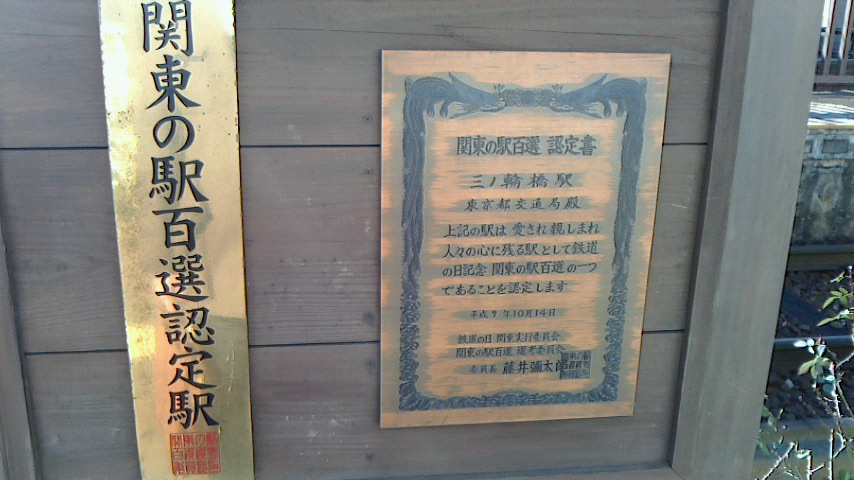 関東の駅百選認定駅
関東の駅百選 認定書
三ノ輪橋駅
東京都交通局殿
上記の駅は 愛され親しまれ
人々の心に残る駅として鉄道
の日記念 関東の駅百選の一つ
であることを認定します
平成9年10月14日
鉄道の日 関東実行委員会
関東の駅百選 選考委員会
委員長 藤井彌太郎